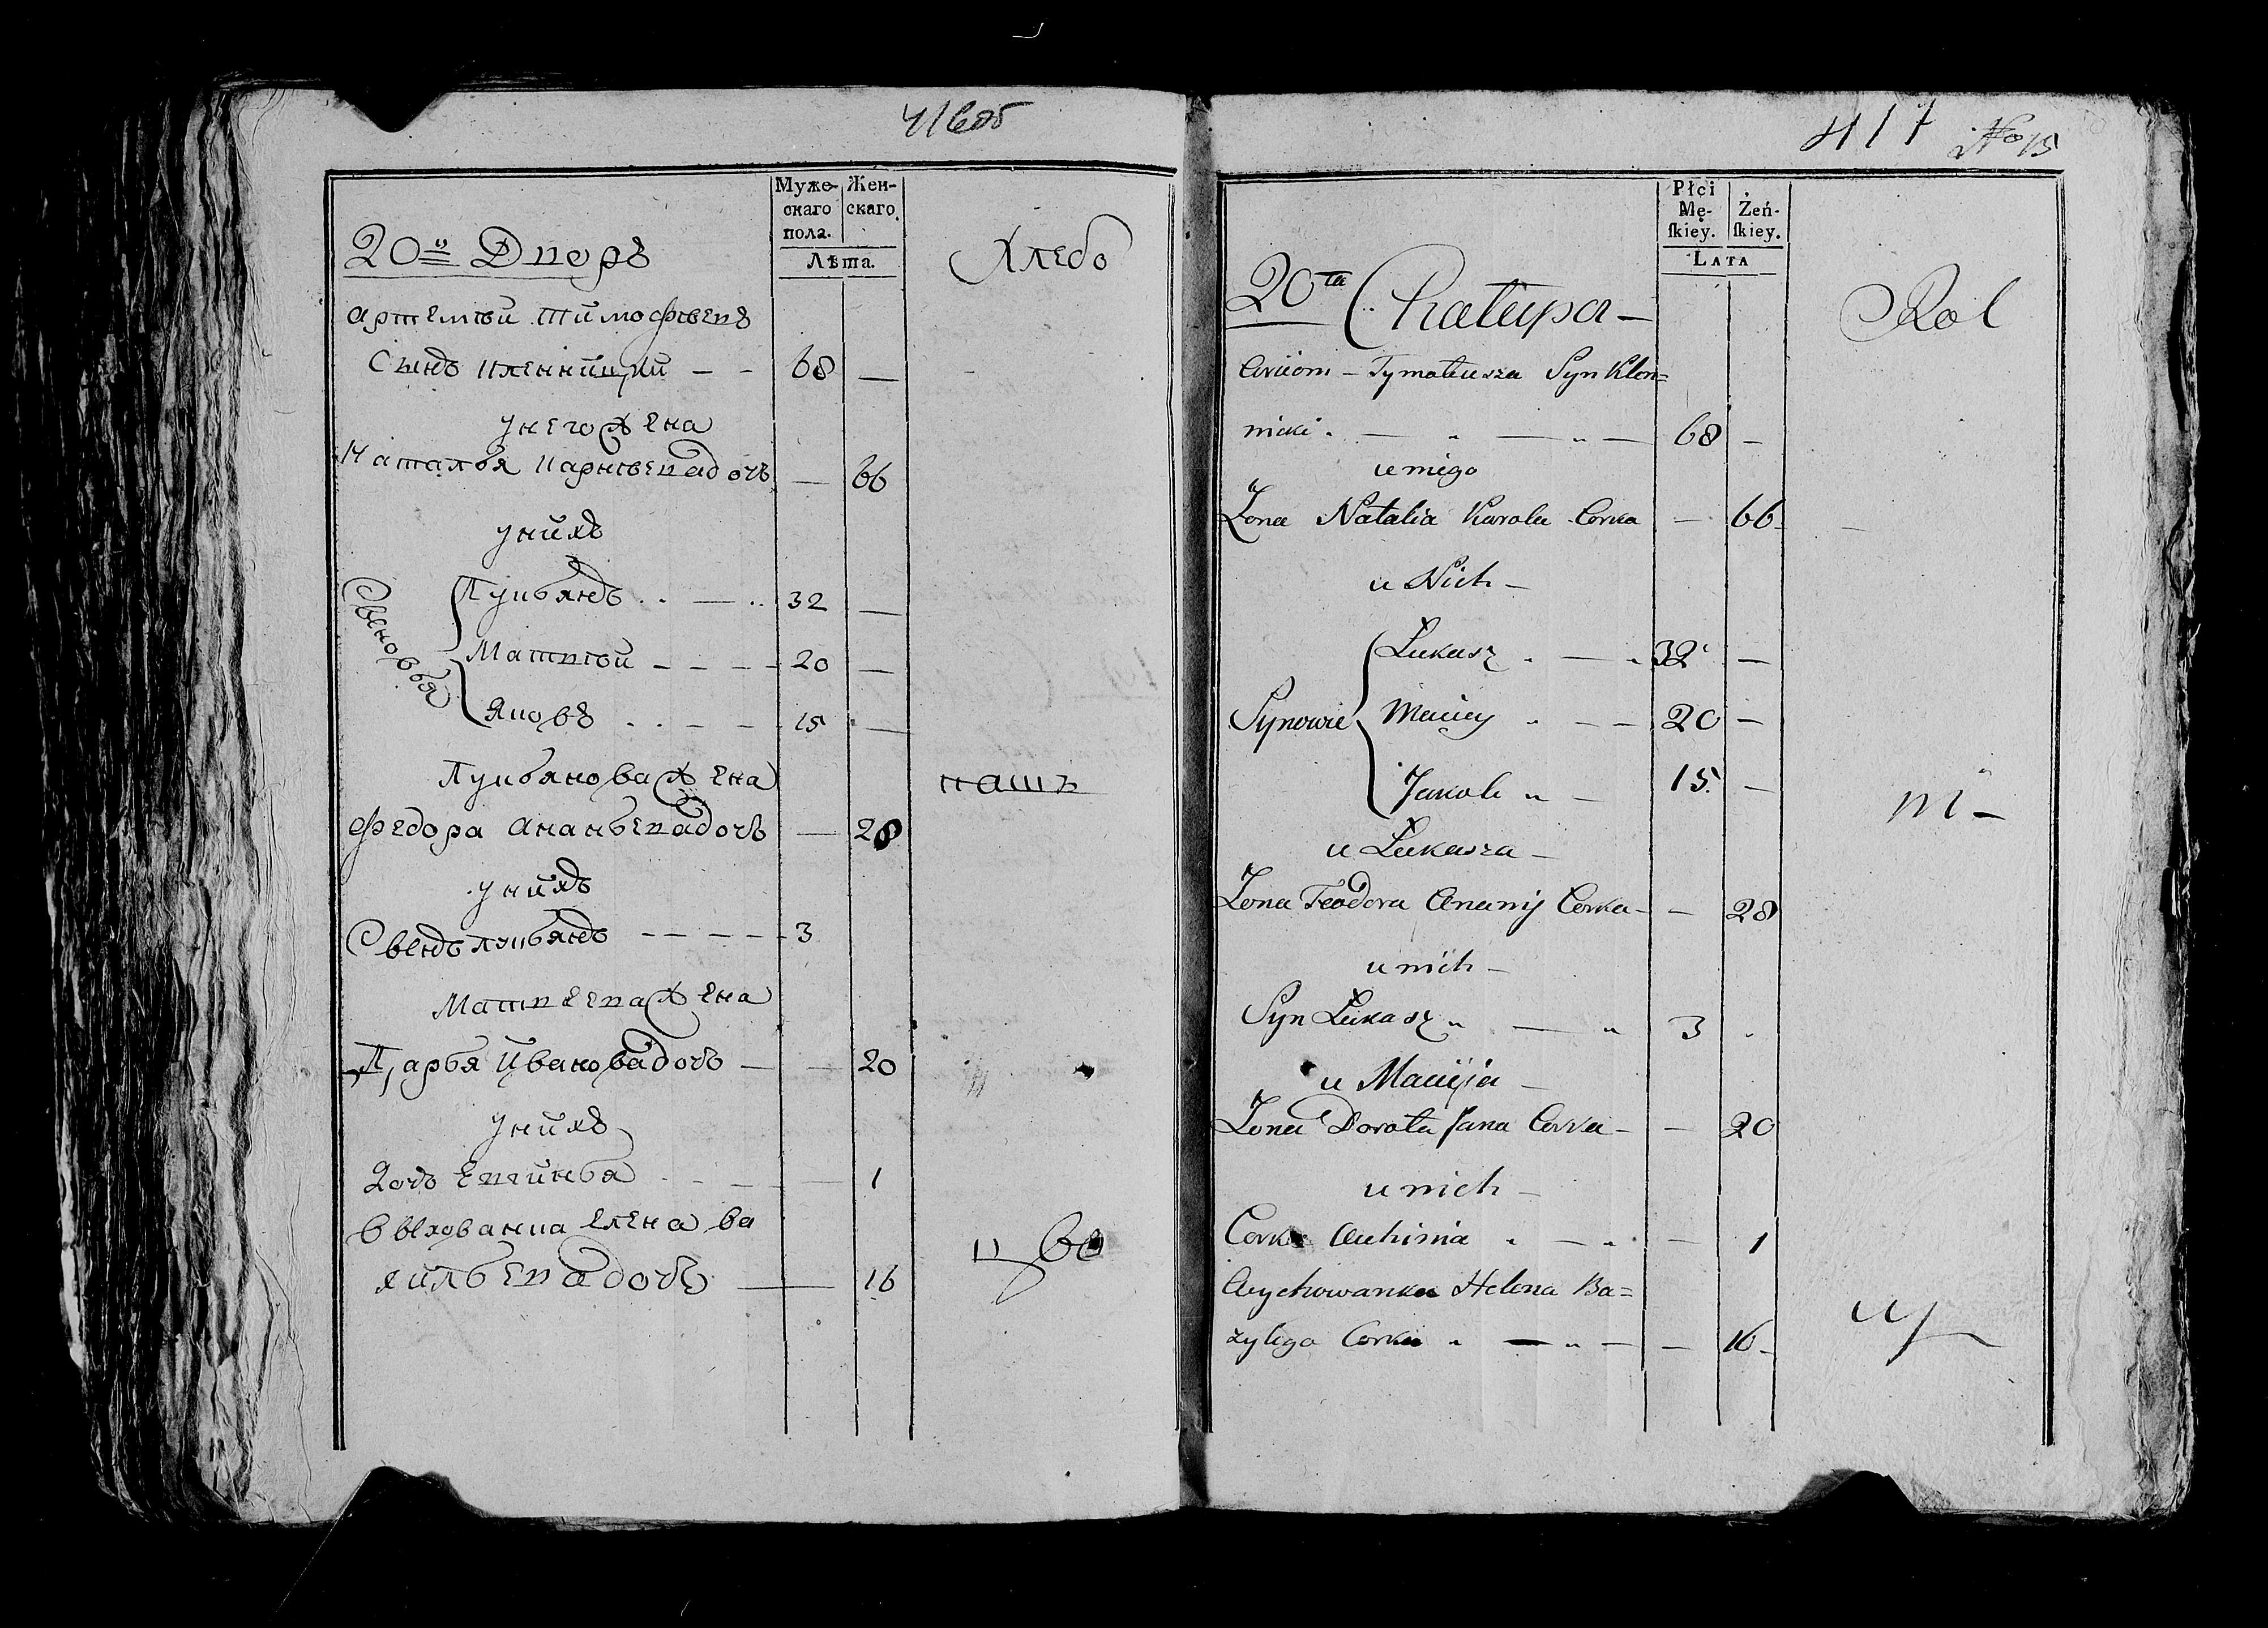 416об
Муже-
скаго
пола.
Жен-
скаго.
Лѣта.
20й Дворъ
Хлебо
Артемѣй Тимофѣевъ
Сынъ Кленницкий — — 68 —
у него жена
Наталья Карнѣева дочь — 66
у нихъ
Сыновья
Лукьянъ — 32 —
Матвѣй — — — 20 —
Яковъ — — 15 —
Лукьянова жена
пашъ
Федора Ананьева дочь — 28
у нихъ
Сынъ Лукьянъ — — — — 3
Матвеева жена
Дарья Ивановa дочь — — 20
у нихъ
Дочь Евгинья — — — 1
Выхованка Елена Ва
силь ева дочь — 16
417
No 15
Płci
Mę-
ſkiey.
Żeń-
ſkiey.
LATA
20ta Chałupa —
Rol
Tymoteusza Syn Klon=
nicki — — — 68 —
u niego
Żona Natalia Karola Corka — 66
u Nich —
Synowie
Łukasz — 32 —
Maciey — — 20 —
Jakob — 15. —
ni —
u Łukasza —
Żona Teodora Ananij Corka — — 28
u nich —
Syn Łukasz — 3
u Macieja —
Żona Dorota Jana Corka — — 20
u nich —
Corka Auhinia — — 1
Wychowanka Helena Ba=
zylego Corka — — — 16 —